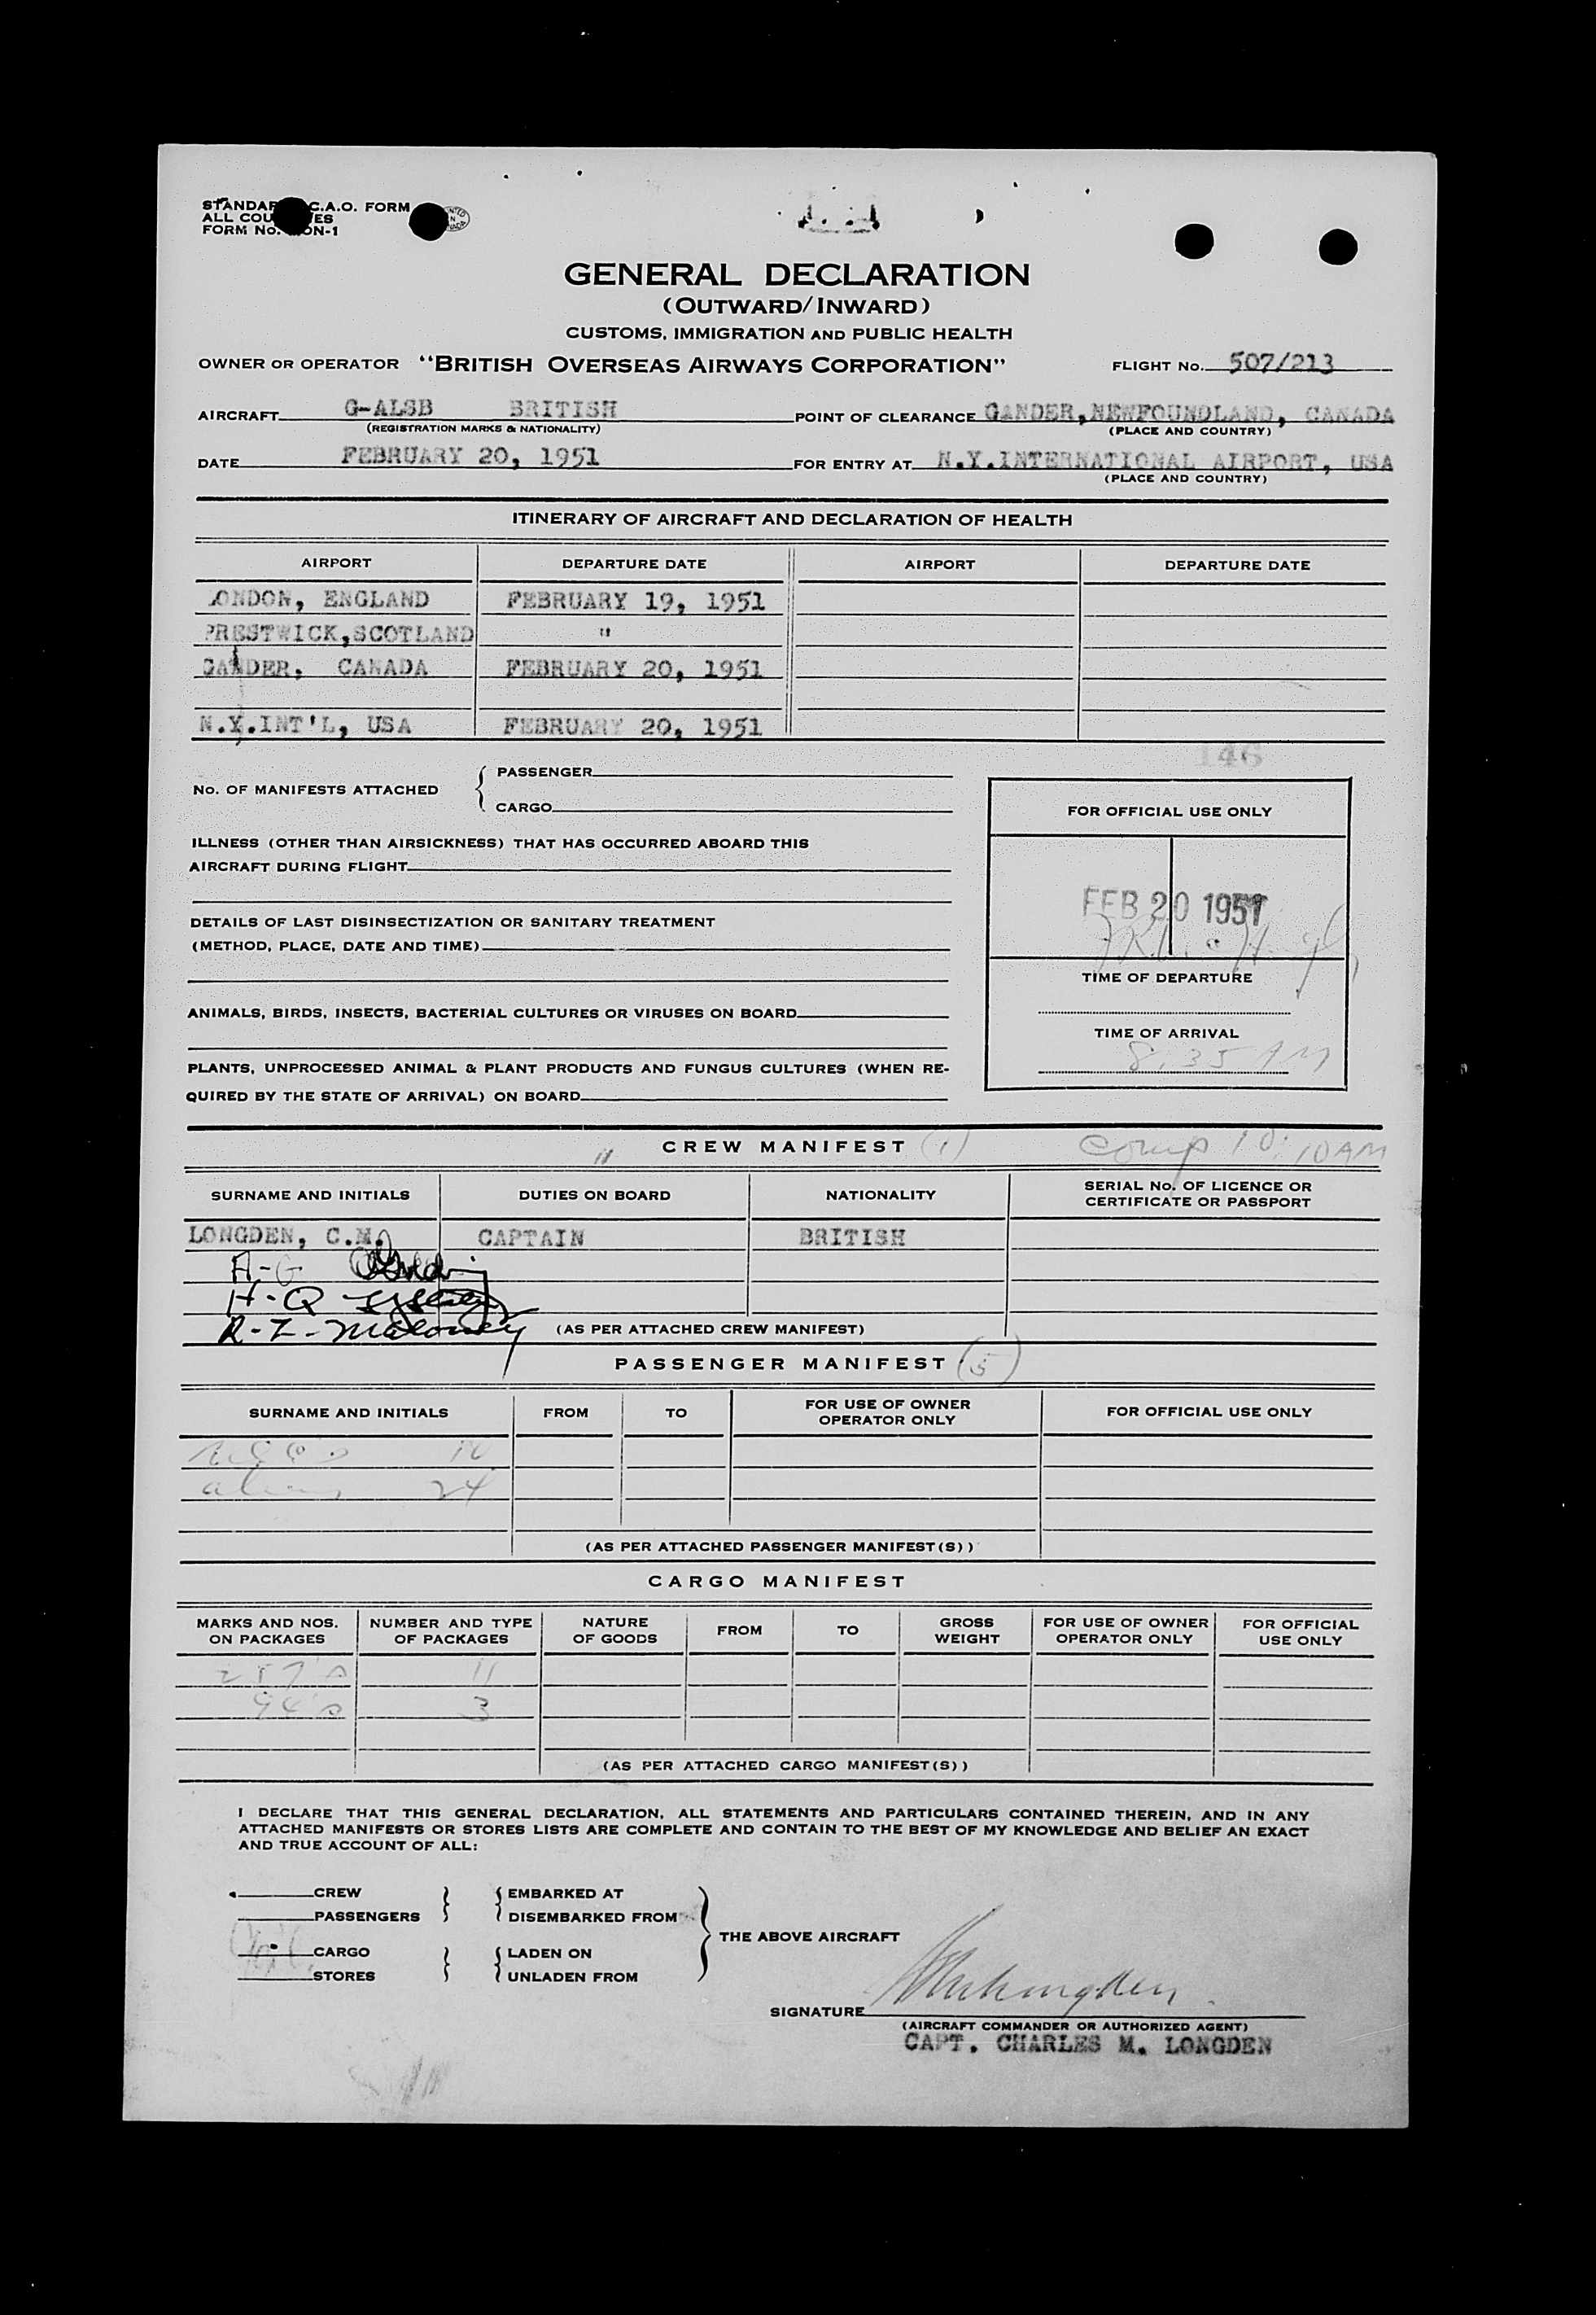 STANDARD C.A.O. FORM
ALL COUNTRIES
FORM No. ON-1
GENERAL DECLARATION
(OUTWARD/INWARD)
CUSTOMS, IMMIGRATION AND PUBLIC HEALTH
OWNER OR OPERATOR "BRITISH OVERSEAS AIRWAYS CORPORATION" FLIGHT No. 507/213
AIRCRAFT G-ALSB BRITISH POINT OF CLEARANCE GANDER,NEWFOUNDLAND, CANADA
(REGISTRATION MARKS & NATIONALITY) (PLACE AND COUNTRY)
DATE FEBRUARY 20, 1951 FOR ENTRY AT N.Y.INTERNATIONAL AIRPORT, USA
(PLACE AND COUNTRY)
ITINERARY OF AIRCRAFT AND DECLARATION OF HEALTH
AIRPORT DEPARTURE DATE AIRPORT DEPARTURE DATE
LONDON, ENGLAND FEBRUARY 19, 1951
PRESTWICK,SCOTLAND "
GANDER, CANADA FEBRUARY 20, 1951
N.Y.INT'L, USA FEBRUARY 20, 1951
146
No. OF MANIFESTS ATTACHED { PASSENGER
CARGO
FOR OFFICIAL USE ONLY
ILLNESS (OTHER THAN AIRSICKNESS) THAT HAS OCCURRED ABOARD THIS
AIRCRAFT DURING FLIGHT
FEB 20 1951
DETAILS OF LAST DISINSECTIZATION OR SANITARY TREATMENT
(METHOD, PLACE, DATE AND TIME)
TIME OF DEPARTURE
ANIMALS, BIRDS, INSECTS, BACTERIAL CULTURES OR VIRUSES ON BOARD
TIME OF ARRIVAL
8:35 AM
PLANTS, UNPROCESSED ANIMAL & PLANT PRODUCTS AND FUNGUS CULTURES (WHEN RE-
QUIRED BY THE STATE OF ARRIVAL) ON BOARD
11 CREW MANIFEST (1) Comp 10:10AM
SURNAME AND INITIALS DUTIES ON BOARD NATIONALITY SERIAL No. OF LICENCE OR
CERTIFICATE OR PASSPORT
LONGDEN, C.M. CAPTAIN BRITISH
A-G
H-Q
R-Z-Maloney (AS PER ATTACHED CREW MANIFEST)
PASSENGER MANIFEST (5)
SURNAME AND INITIALS FROM TO FOR USE OF OWNER
OPERATOR ONLY FOR OFFICIAL USE ONLY
aliens 24
(AS PER ATTACHED PASSENGER MANIFEST(S))
CARGO MANIFEST
MARKS AND NOS.
ON PACKAGES NUMBER AND TYPE
OF PACKAGES NATURE
OF GOODS FROM TO GROSS
WEIGHT FOR USE OF OWNER
OPERATOR ONLY FOR OFFICIAL
USE ONLY
257's 11
94's 3
(AS PER ATTACHED CARGO MANIFEST(S))
I DECLARE THAT THIS GENERAL DECLARATION, ALL STATEMENTS AND PARTICULARS CONTAINED THEREIN, AND IN ANY
ATTACHED MANIFESTS OR STORES LISTS ARE COMPLETE AND CONTAIN TO THE BEST OF MY KNOWLEDGE AND BELIEF AN EXACT
AND TRUE ACCOUNT OF ALL:
CREW } { EMBARKED AT
PASSENGERS DISEMBARKED FROM
} THE ABOVE AIRCRAFT
CARGO } { LADEN ON
STORES UNLADEN FROM
SIGNATURE
(AIRCRAFT COMMANDER OR AUTHORIZED AGENT)
CAPT. CHARLES M. LONGDEN